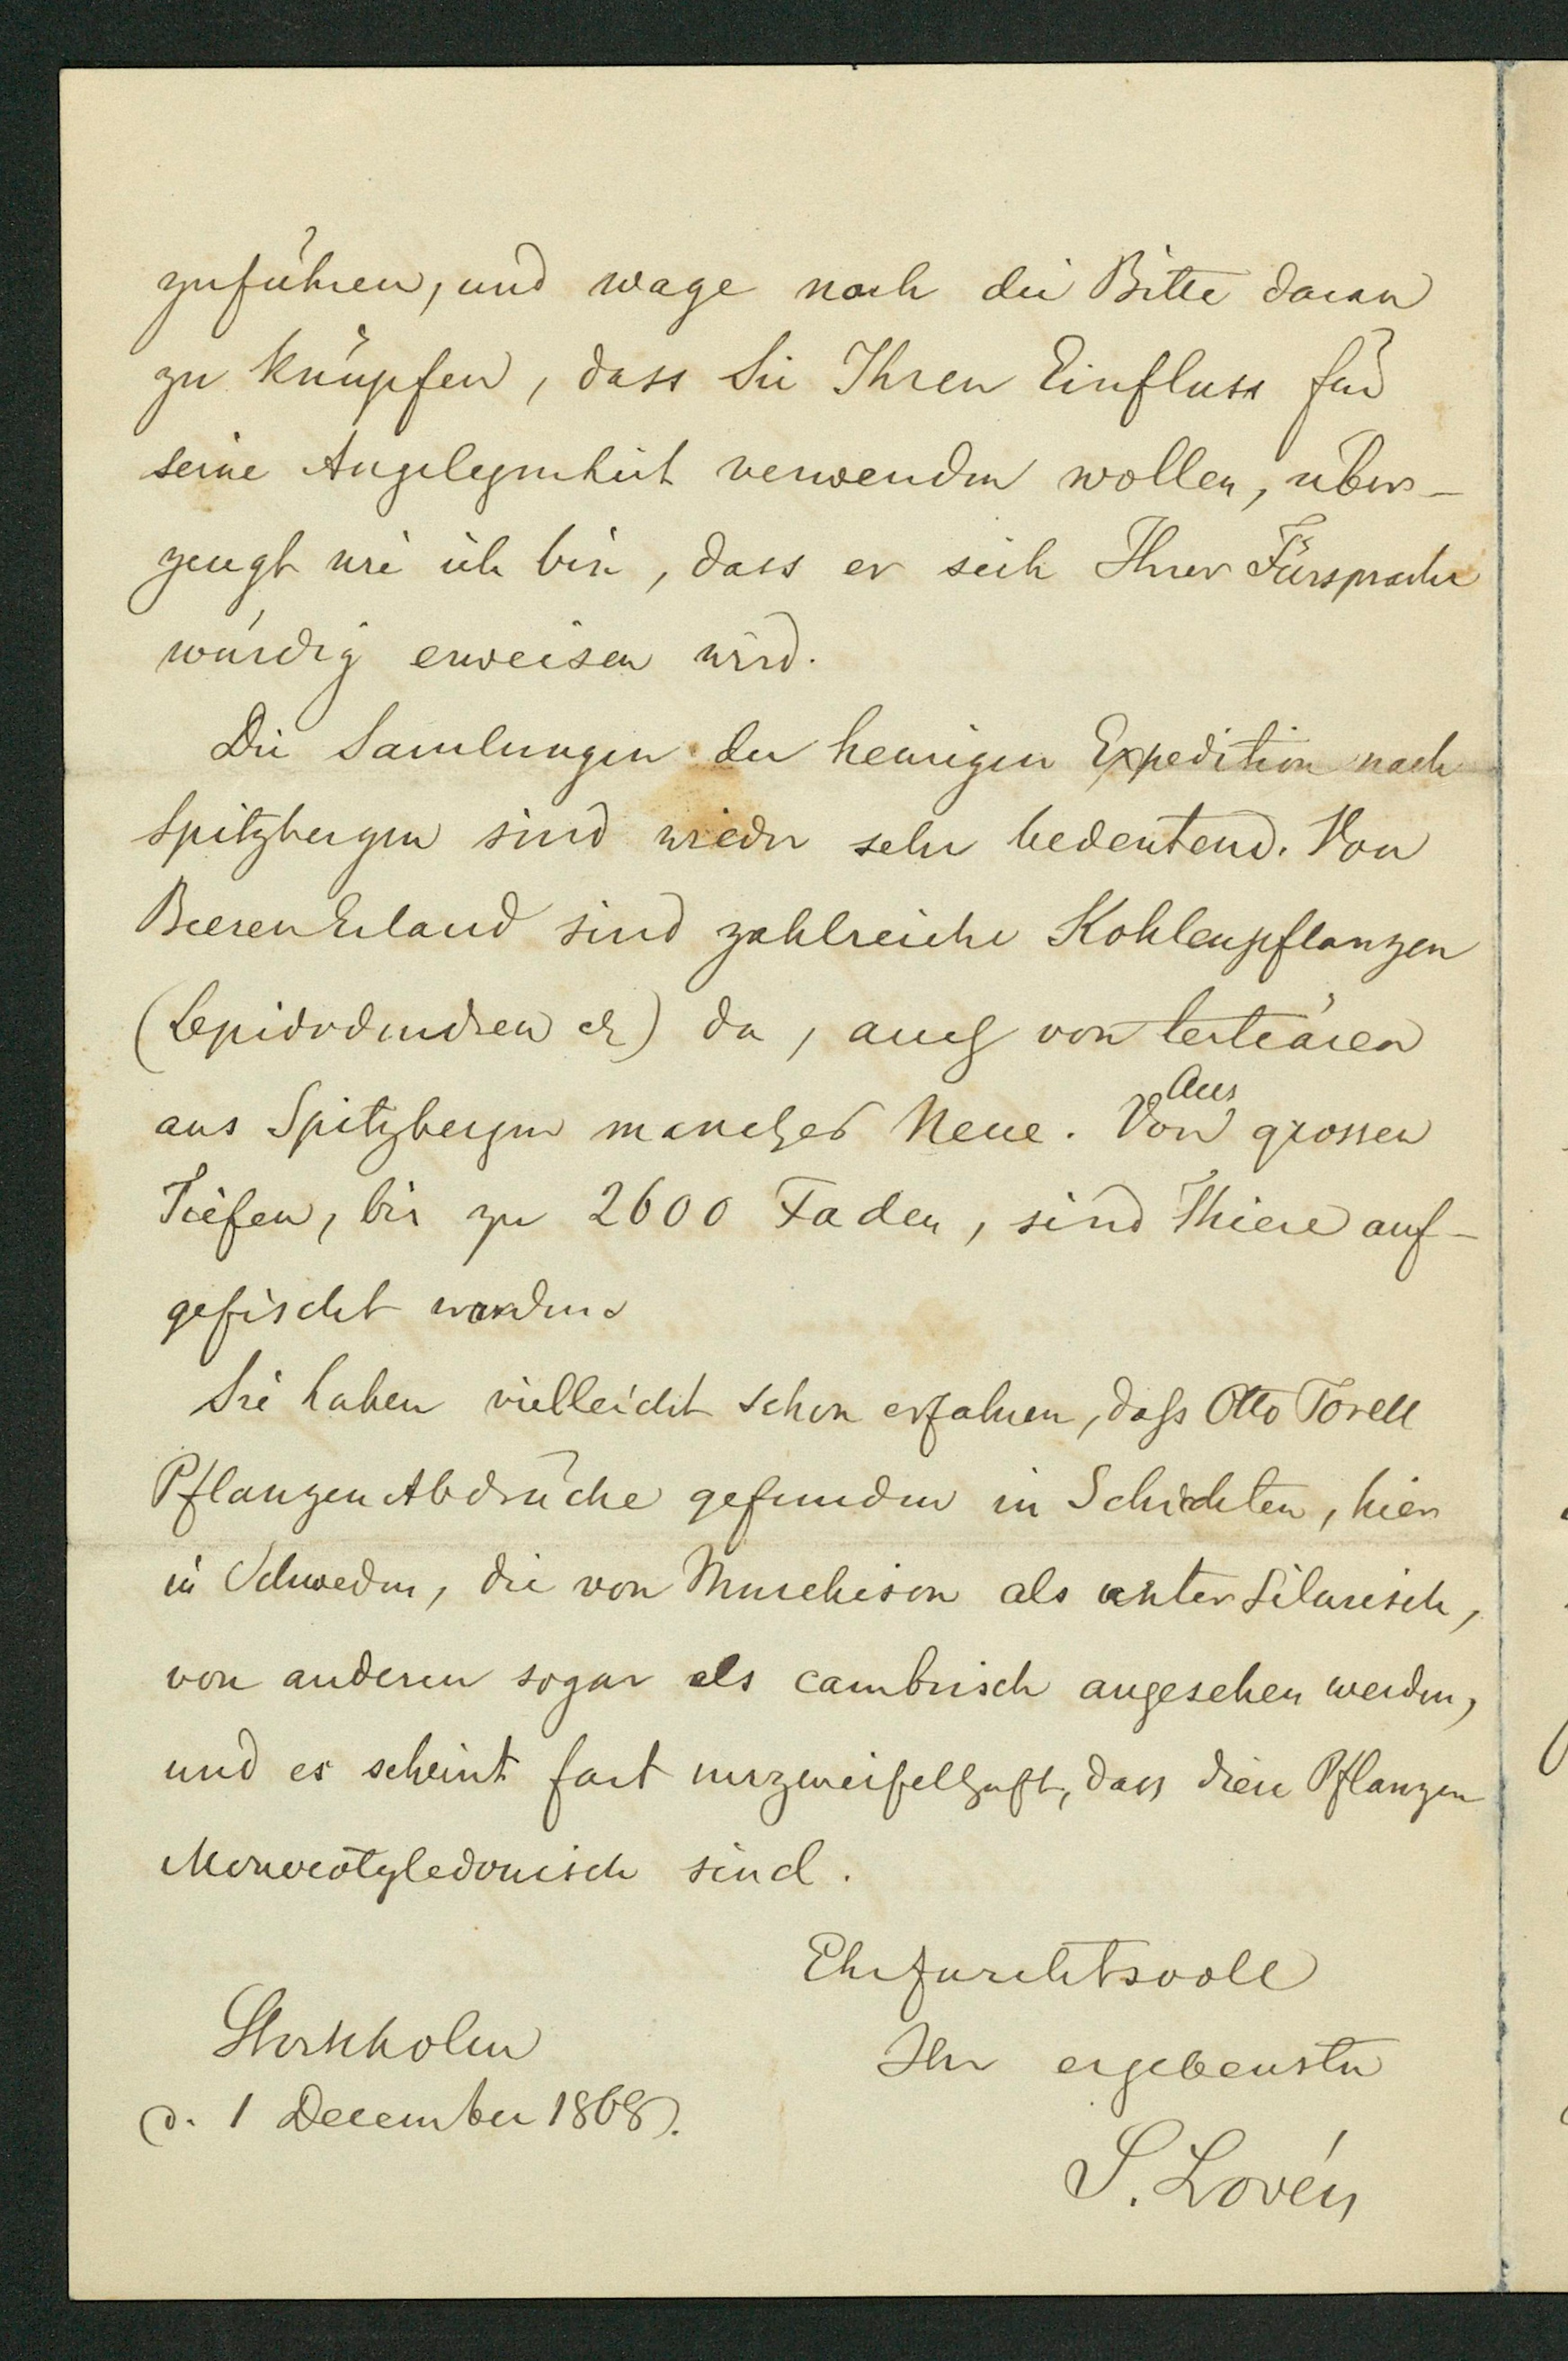 zuführen, und wage noch die Bitte daran
zu knüpfen, dass Sie Ihren Einfluss für
seine Angelegenheit verwenden wollen, über-
zeugt wie ich bin, dass er sich Ihrer Fürsprache
würdig erweisen wird.
Die Samlungen der heurigen Expedition nach
Spitzbergen sind wieder sehr bedeutend. Von
Beeren Eiland sind zahlreiche Kohlenpflanzen
(Lepidodendren &) da, auch von tertiären
aus Spitzbergen manches Neue. Von Aus grossen
Tiefen, bis zu 2600 Faden, sind Thiere auf-
gefischt worden.
Sie haben vielleicht schon erfahren, daſs Otto Torell
Pflanzen Abdrücke gefunden in Schichten, hier
in Schweden, die von Murchison als unter Silurisch,
von anderen sogar als cambrisch angesehen werden,
und es scheint fast unzweifelhaft, dass diese Pflanzen
Monocotyledonisch sind.
Ehrfurchtsvoll
Stockholm
Ihr ergebenster
d. 1 December 1868.
S. Lovén